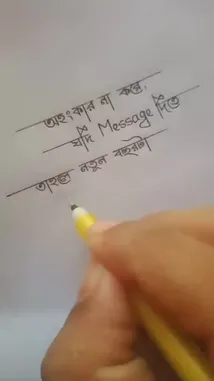 অহংকার না করে,
যদি Message দিতে
তাহলে নতুন বছরটা